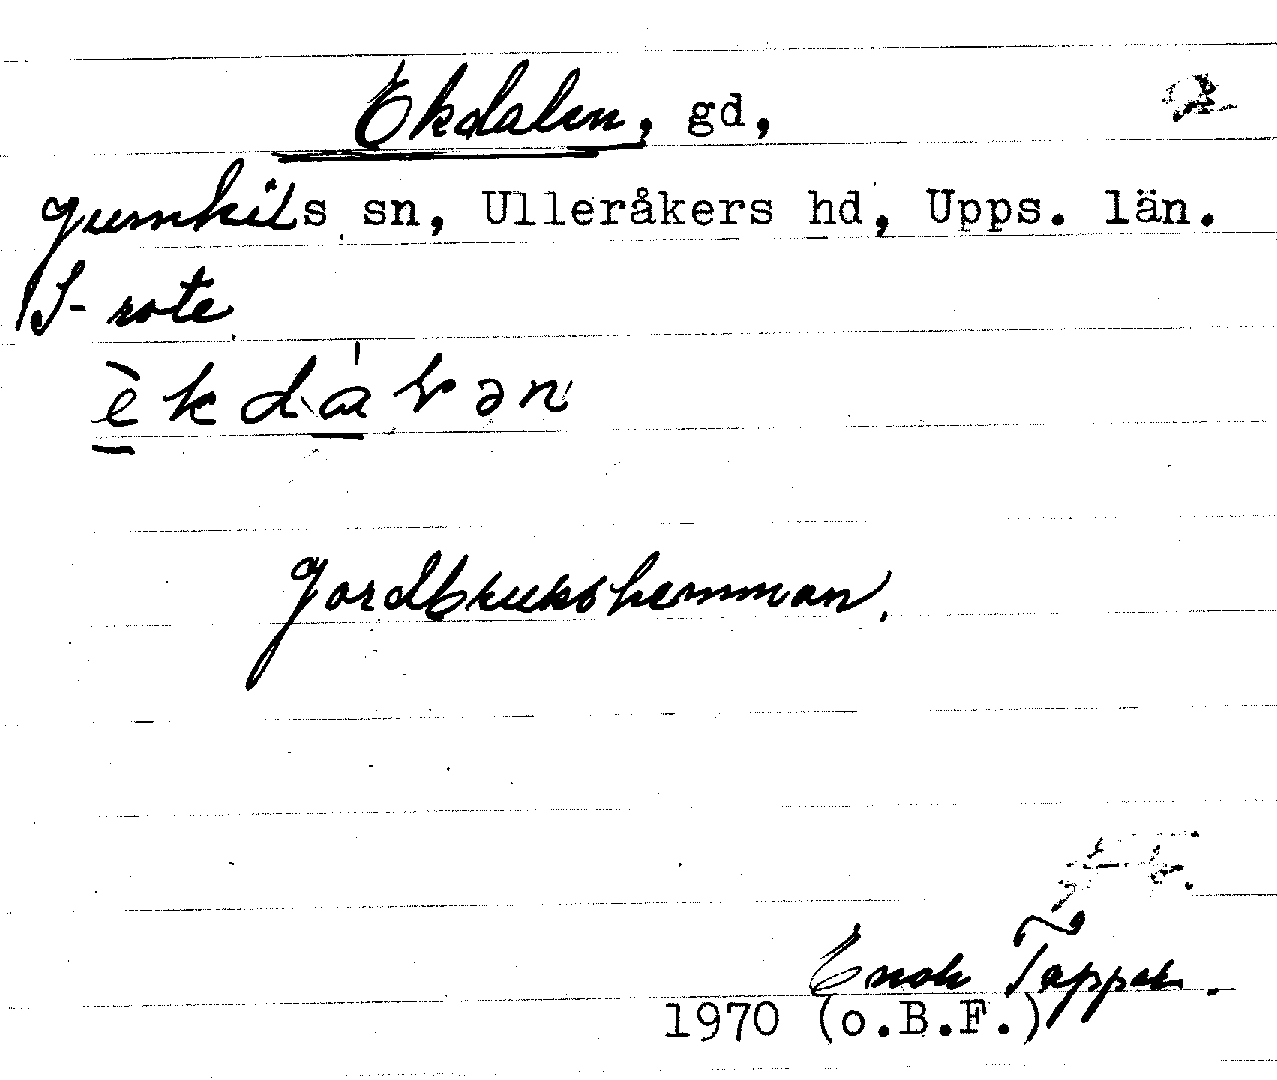 Ekdalen, gd, 2
Jumkils sn, Ulleråkers hd, Upps. län.
S-rote
Jordbrukshemman.
Enok Tapper.
1970 (o.B.F.)